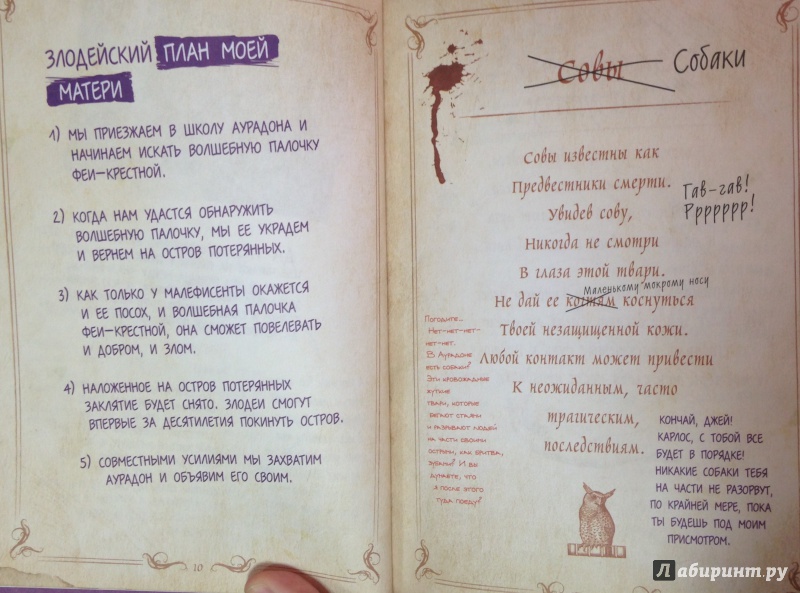 ЗЛОДЕЙСКИЙ ПЛАН МОЕЙ
МАТЕРИ
1) МЫ ПРИЕЗЖАЕМ В ШКОЛУ АУРАДОНА И
НАЧИНАЕМ ИСКАТЬ ВОЛШЕБНУЮ ПАЛОЧКУ
ФЕИ-КРЕСТНОЙ.
2) КОГДА НАМ УДАСТСЯ ОБНАРУЖИТЬ
ВОЛШЕБНУЮ ПАЛОЧКУ, МЫ ЕЕ УКРАДЕМ
И ВЕРНЕМ НА ОСТРОВ ПОТЕРЯННЫХ.
3) КАК ТОЛЬКО У МАЛЕФИСЕНТЫ ОКАЖЕТСЯ
И ЕЕ ПОСОХ, И ВОЛШЕБНАЯ ПАЛОЧКА
ФЕИ-КРЕСТНОЙ, ОНА СМОЖЕТ ПОВЕЛЕВАТЬ
И ДОБРОМ, И ЗЛОМ.
4) НАЛОЖЕННОЕ НА ОСТРОВ ПОТЕРЯННЫХ
ЗАКЛЯТИЕ БУДЕТ СНЯТО. ЗЛОДЕИ СМОГУТ
ВПЕРВЫЕ ЗА ДЕСЯТИЛЕТИЯ ПОКИНУТЬ ОСТРОВ.
5) СОВМЕСТНЫМИ УСИЛИЯМИ МЫ ЗАХВАТИМ
АУРАДОН И ОБЪЯВИМ ЕГО СВОИМ.
10
Совы Собаки
Совы известны как
Предвестники смерти.
Увидев сову,
Никогда не смотри
В глаза этой твари.
Маленькому мокрому носу
Не дай ее когтям коснуться
Твоей незащищенной кожи.
Любой контакт может привести
К неожиданным, часто
трагическим,
последствиям.
Гав-гав!
Рррррр!
Погодите...
Нет-нет-нет-
нет-нет.
В Аурадоне
есть собаки?
Эти кровожадные
жуткие
твари, которые
бегают стаями
и разрывают людей
на части своими
острыми, как бритва,
зубами? И вы
думаете, что
я после этого
туда поеду?
КОНЧАЙ, ДЖЕЙ!
КАРЛОС, С ТОБОЙ ВСЕ
БУДЕТ В ПОРЯДКЕ!
НИКАКИЕ СОБАКИ ТЕБЯ
НА ЧАСТИ НЕ РАЗОРВУТ,
ПО КРАЙНЕЙ МЕРЕ, ПОКА
ТЫ БУДЕШЬ ПОД МОИМ
ПРИСМОТРОМ.
Лабиринт.ру